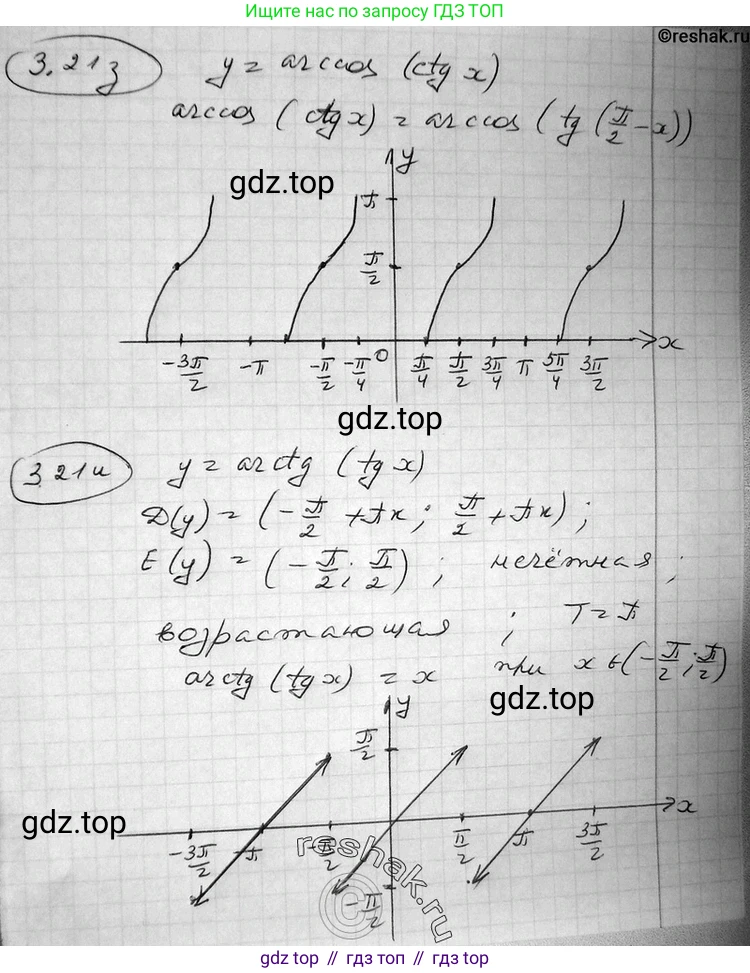 Ищите нас по запросу ГДЗ ТОП
©reshak.ru
3.21з y = arccos (ctg x)
arccos (ctg x) = arccos (tg (π/2 - x))
gdz.top
y
π
π/2
-3π/2 -π -π/2 -π/4 0 π/4 π/2 3π/4 π 5π/4 3π/2 x
gdz.top
3.21и y = arctg (tg x)
D(y) = (-π/2 + πn; π/2 + πn);
E(y) = (-π/2; π/2); нечётная;
возрастающая; T = π
arctg (tg x) = x при x ∈ (-π/2; π/2)
gdz.top
y
π/2
x
gdz.top
-3π/2 -π -π/2 π/2 π 3π/2
-π/2
reshak.ru
©
gdz.top // гдз.топ // gdz.top